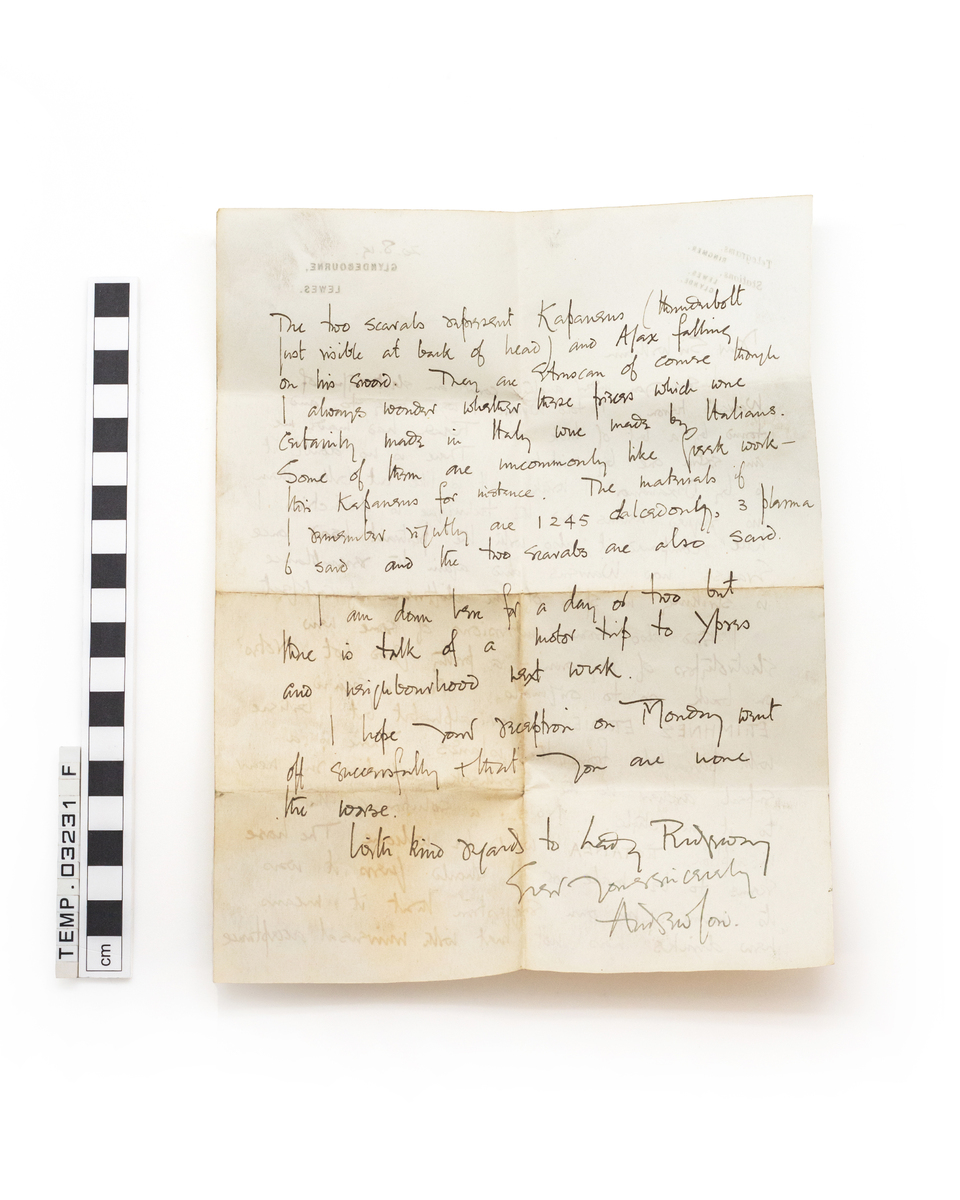 The two scarabs represent Kapaneus (thunderbolt
just visible at back of head) and Ajax falling
on his sword. They are Etruscan of course though
I always wonder whether these pieces which were
certainly made in Italy were made by Italians.
Some of them are uncommonly like Greek work –
this Kapaneus for instance. The materials if
I remember rightly are 1 2 4 5 chalcedony, 3 plasma
6 sard and the two scarabs are also sard.
I am down here for a day or two but
there is talk of a motor trip to Ypres
and neighbourhood next week.
I hope your reception on Monday went
off successfully + that you are none
the worse.
With kind regards to Lady Ridgeway
Ever yours sincerely
GLYNDEBOURNE,
LEWES.
TEMP.03231 F
cm